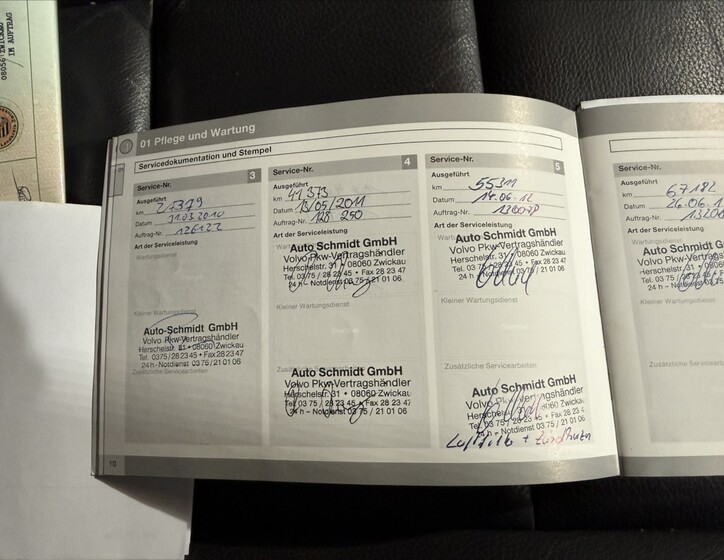 08056 ZWICKAU
IM AUFTRAG
01 Pflege und Wartung
Servicedokumentation und Stempel
Service-Nr. 3
Ausgeführt
km
Datum 31.03.2010
Auftrag-Nr. 126122
Art der Serviceleistung
Wartungsdienst
Kleiner Wartungsdienst
Auto-Schmidt GmbH
Volvo Pkw-Vertragshändler
Herschelstr. 31 • 08060 Zwickau
Tel. 0375/282345 • Fax 282347
24 h - Notdienst 0375/210106
Zusätzliche Servicearbeiten
Service-Nr. 4
Ausgeführt
km 41 373
Datum 13/05/2011
Auftrag-Nr. 128 250
Art der Serviceleistung
Auto Schmidt GmbH
Volvo Pkw-Vertragshändler
Herschelstr. 31 • 08060 Zwickau
Tel. 03 75 / 28 23 45 • Fax 28 23 47
24 h – Notdienst 03 75 / 21 01 06
Kleiner Wartungsdienst
Auto Schmidt GmbH
Volvo Pkw-Vertragshändler
Herschelstr. 31 • 08060 Zwickau
Tel. 03 75 / 28 23 45 • Fax 28 23 47
24 h – Notdienst 03 75 / 21 01 06
Service-Nr. 5
Ausgeführt
km 55311
Datum 14.06.12
Auftrag-Nr.
Art der Serviceleistung
Auto Schmidt GmbH
Volvo Pkw-Vertragshändler
Herschelstr. 31 • 08060 Zwickau
Tel. 03 75 / 28 23 45 • Fax 28 23 47
24 h – Notdienst 03 75 / 21 01 06
Kleiner Wartungsdienst
Zusätzliche Servicearbeiten
Auto Schmidt GmbH
Volvo Pkw-Vertragshändler
Herschelstr. 31 • 08060 Zwickau
Tel. 03 75 / 28 23 45 • Fax 28 23 4
24 h – Notdienst 03 75 / 21 01 06
10
Service-Nr.
Ausgeführt
km 67182
Datum 26.06.1
Auftrag-Nr. 1320
Art der Serviceleistung
Auto Schmidt G
Volvo Pkw-Vertrags
Herschelstr. 31 • 0806
Tel. 03 75 / 28 23 45
24 h – Notdienst 0
Kleiner Wartungsdienst
Zusätzliche Servicearbeiten